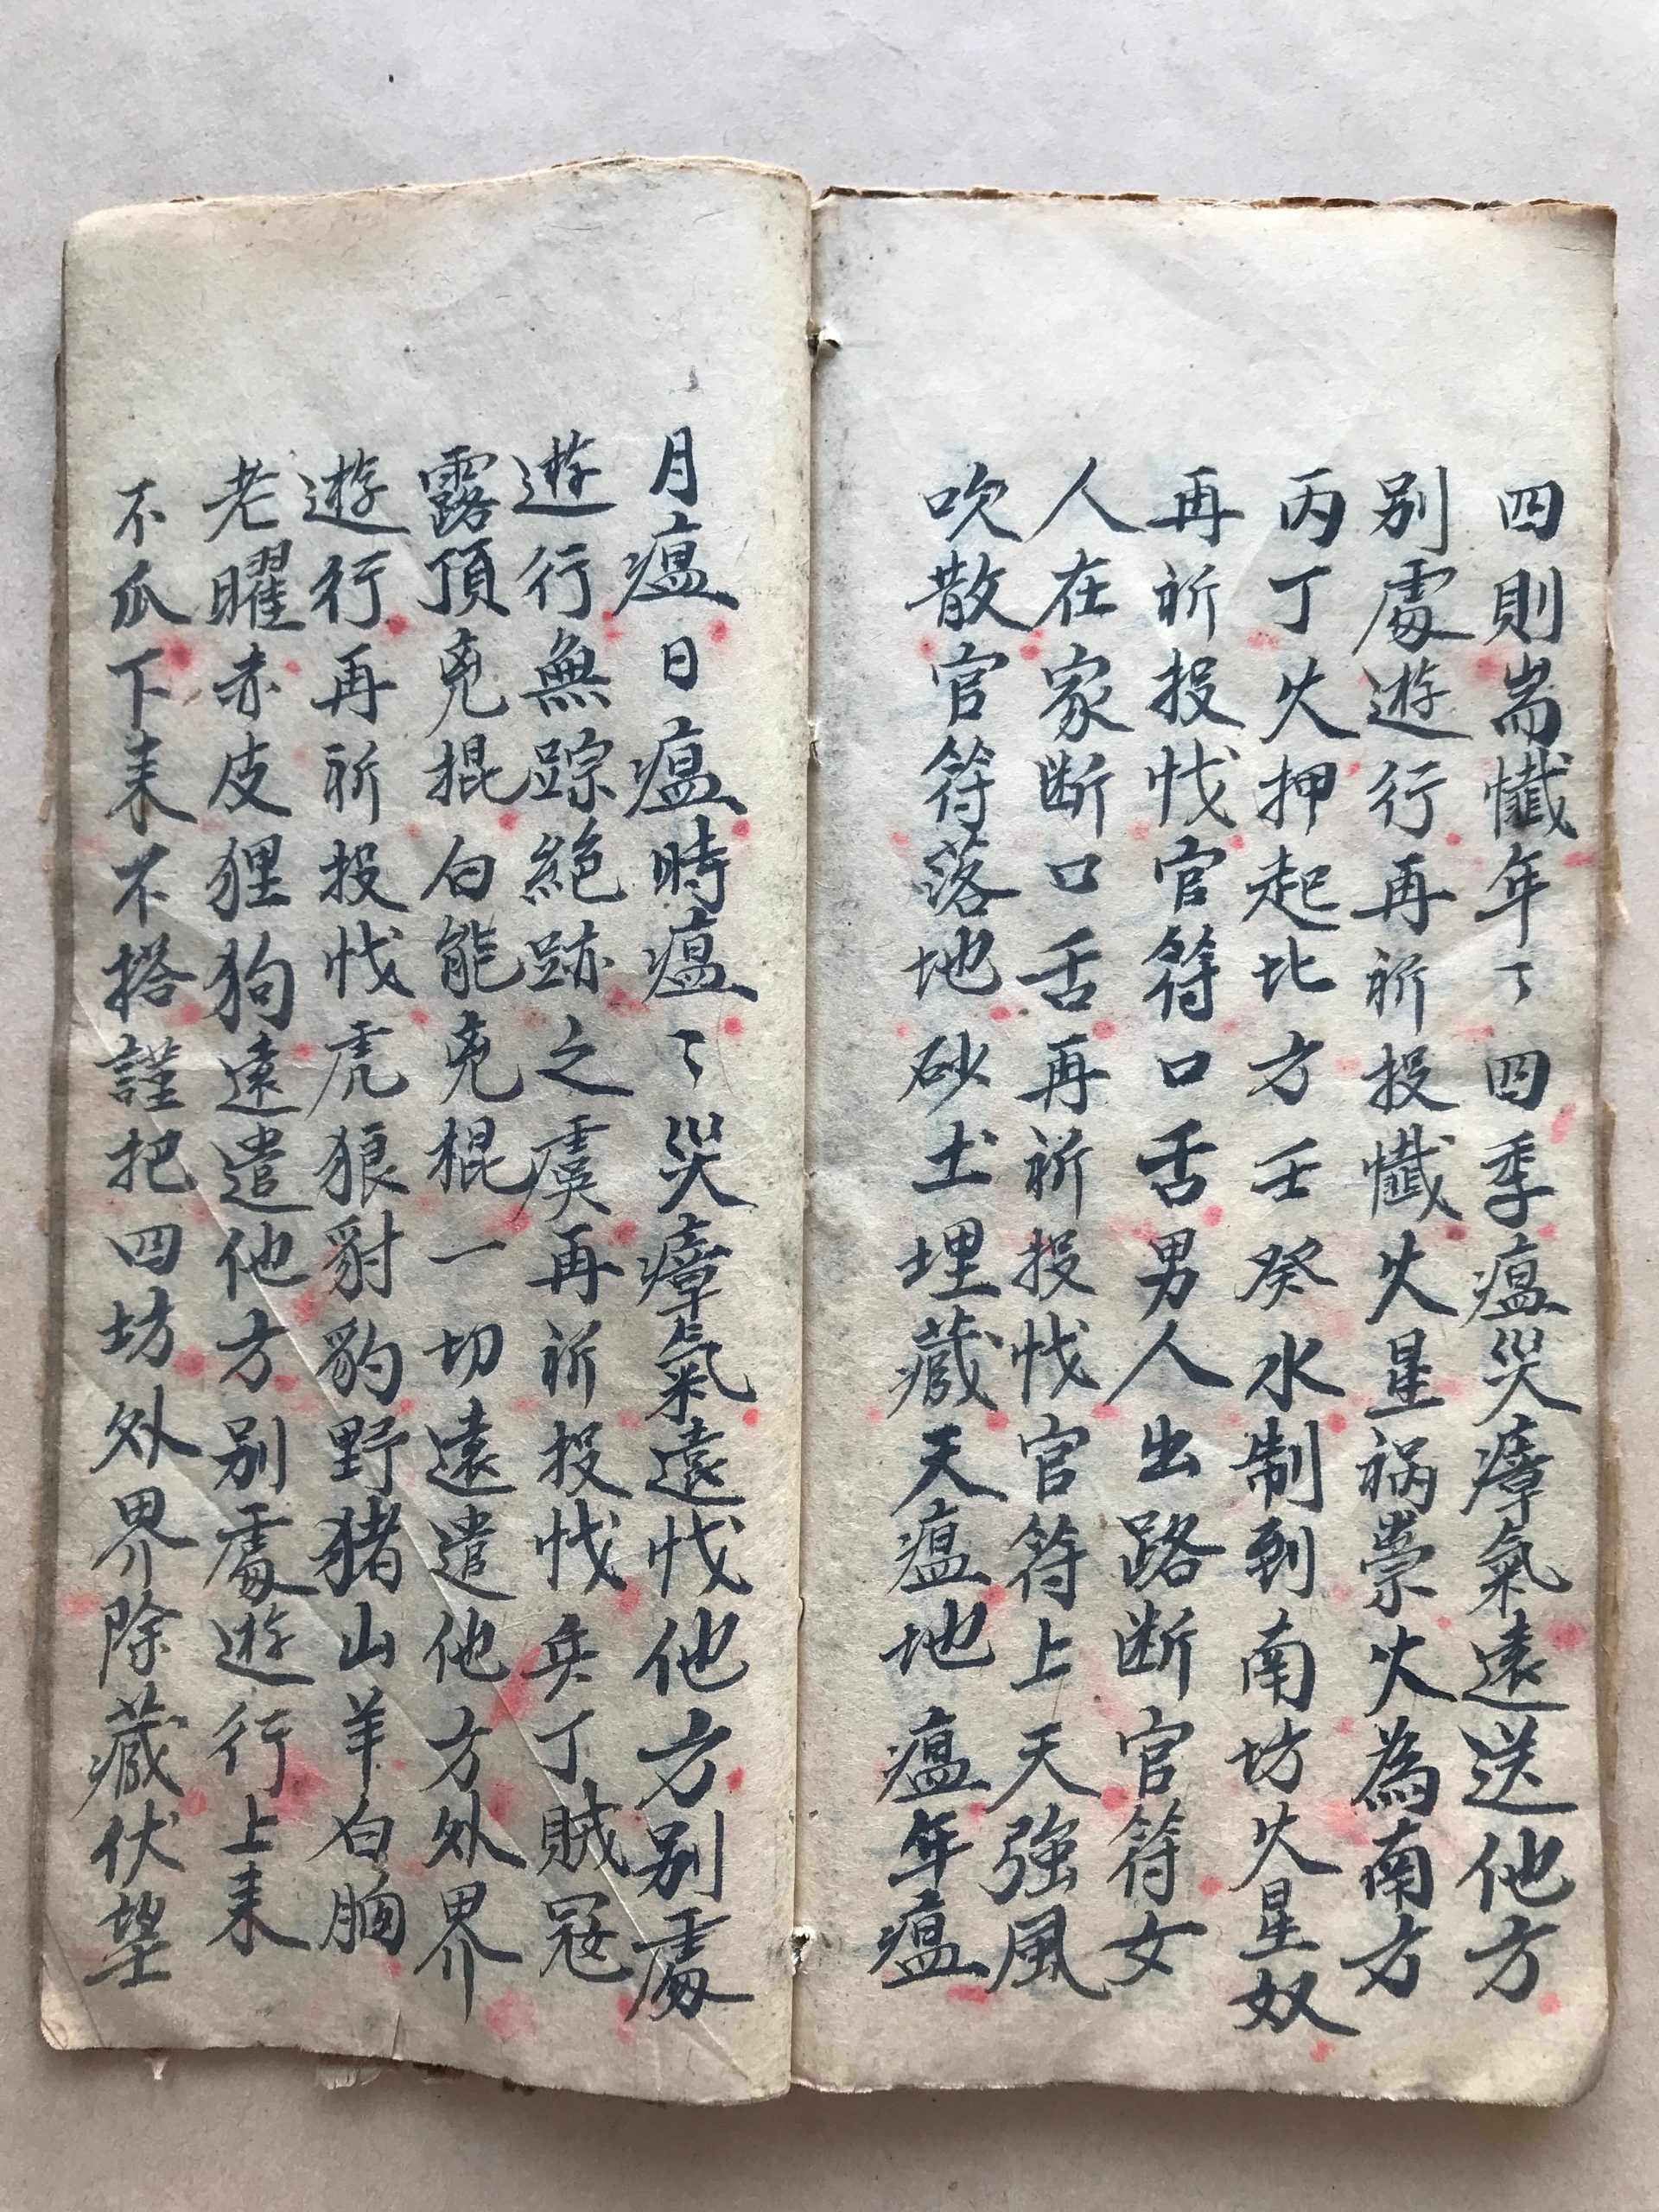 四則耑懺年々四季瘟災瘴氣遠送他方
别處遊行再祈投懺火星禍祟火為南方
丙丁火押起北方壬癸水制到南坊火星奴
再祈投忏官符口舌男人出路断官符女
人在家断口舌再祈投忏官符上天強風
吹散官符落地砂土埋藏天瘟地瘟年瘟
月瘟日瘟時瘟々災瘴氣遠忏他方别處
遊行無踪絕跡之虞再祈投忏兵丁賊冦
露頂堯棍白能堯棍一切遠遣他方外界
遊行再祈投忏虎狼豺豹野猪山羊白胸
老曜赤皮狸狗遠遣他方别處遊行上来
不瓜下来不撘謹把四坊外界除藏伏望